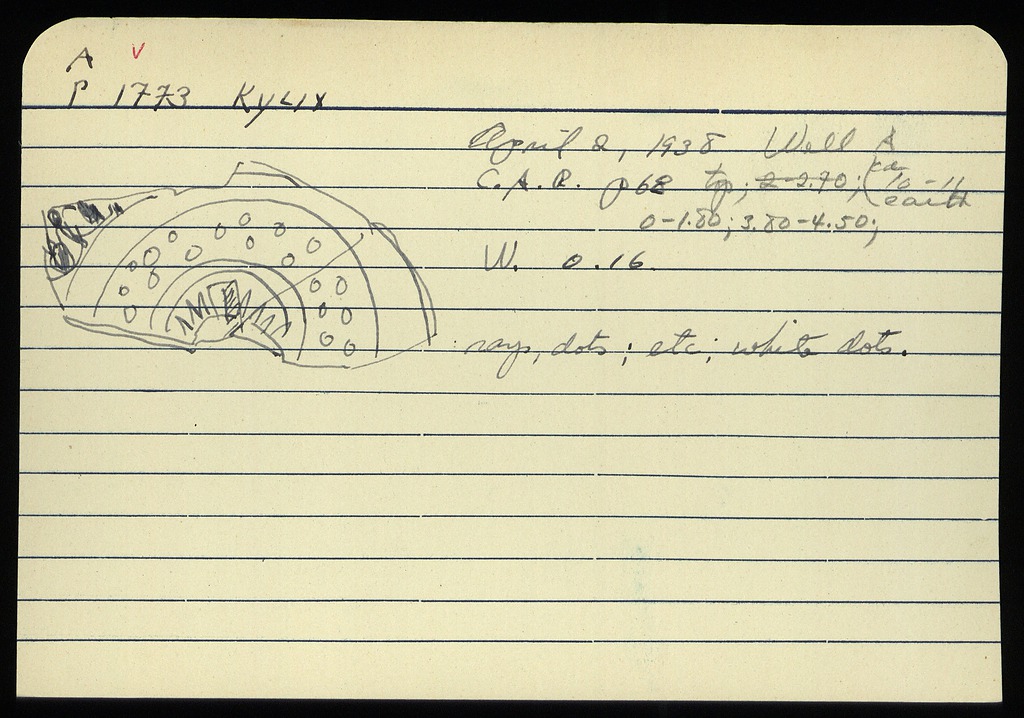 A v
P 1773 KYLIX
April 2, 1938 Well A
C.A.R. p 68 top; 2-2.70; (ca 10-11 earth
0-1.80; 3.80-4.50;
W. 0.16
rays, dots; etc; white dots.